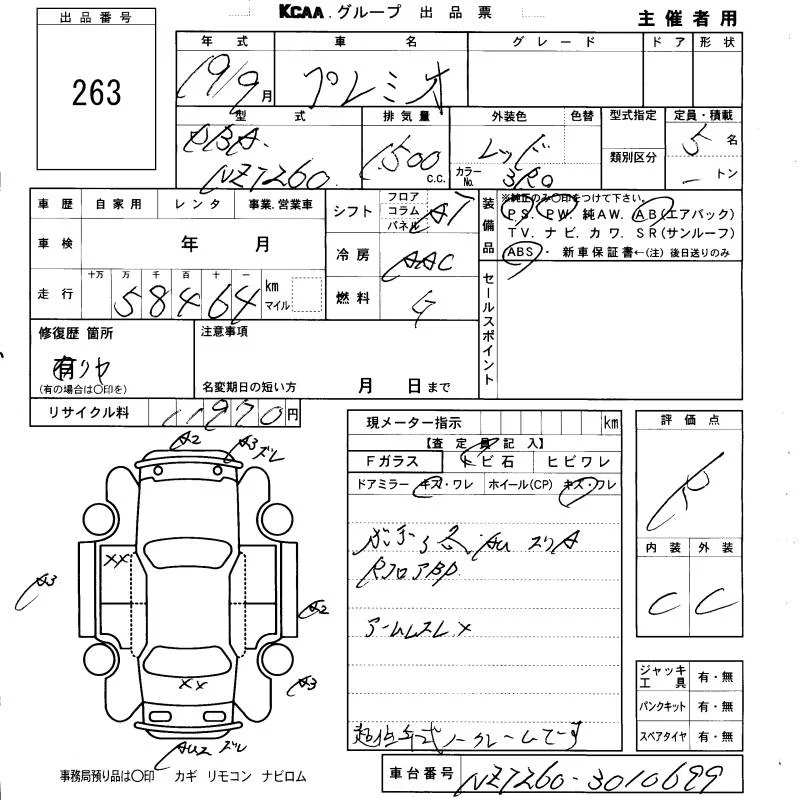 KCAA.グループ 出品票
主催者用
出品番号
263
年式 車名 グレード ドア 形状
19/9月 プレミオ
型式 排気量 外装色 色替 型式指定 定員・積載
DBA-
NZT260 1500 C.C. レッド
カラーNo. 3R0
類別区分
5名
ートン
車歴 自家用 レンタ 事業.営業車
車検 年 月
走行 十万 万 千 百 十 一
58464 km マイル
シフト フロア コラム パネル AT
冷房 AAC
燃料 G
装備品
※純正のみ〇印をつけて下さい。
PS. PW. 純AW. AB(エアバック)
TV. ナビ. カワ. SR(サンルーフ)
ABS・ 新車保証書←(注) 後日送りのみ
セールスポイント
修復歴 箇所
有リヤ
(有の場合は〇印を)
注意事項
名変期日の短い方 月 日まで
リサイクル料 11970円
現メーター指示 km
【査定員記入】
Fガラス トビ石 ヒビワレ
ドアミラー キズ・ワレ ホイール(CP) キズ・ワレ
AU ズリA
RフロアBP
アームレスレ×
ノークレームです
評価点
R
内装 外装
C C
ジャッキ工具 有・無
パンクキット 有・無
スペアタイヤ 有・無
A2
A3 ズレ
XX
A3
A2
XX
A3
AU2 ズレ
事務局預り品は〇印 カギ リモコン ナビロム
車台番号 NZT260-3010699